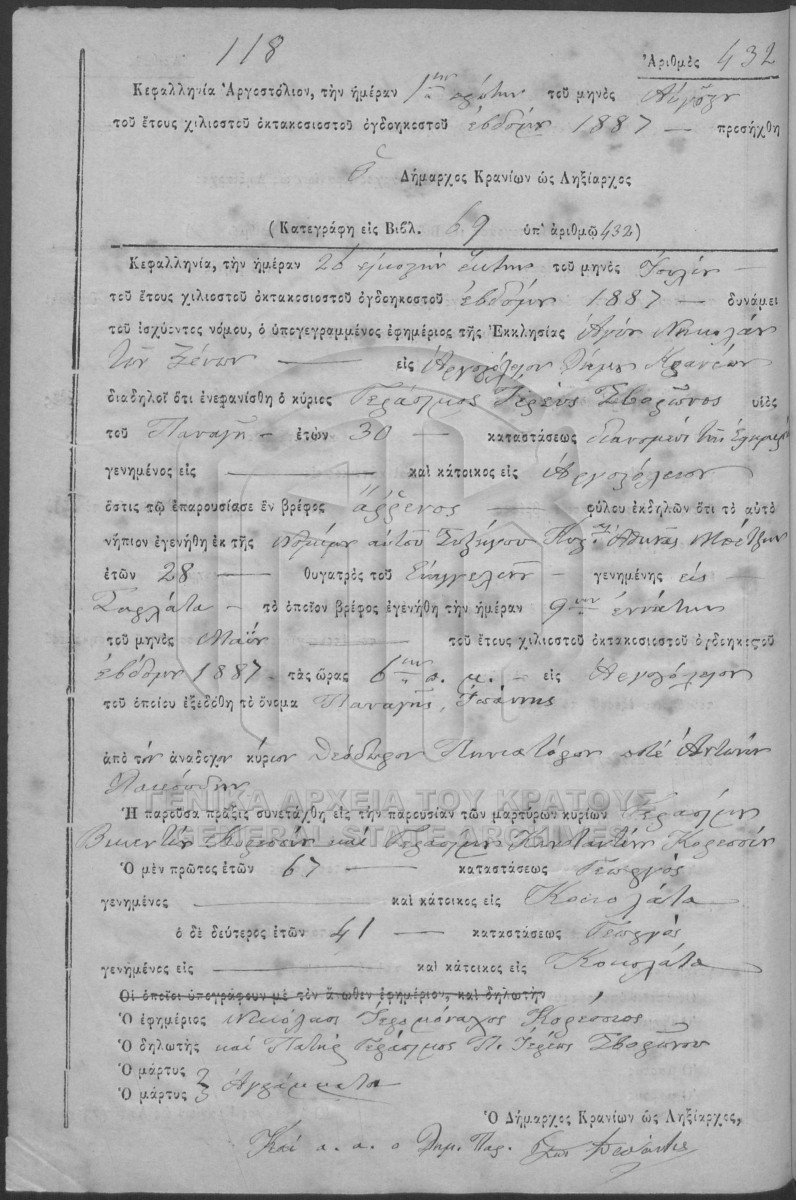 118
Ἀριθμὸς 432
Κεφαλληνία Ἀργοστόλιον, τὴν ἡμέραν 1ην πρώτην τοῦ μηνὸς Αὐγούστου
τοῦ ἔτους χιλιοστοῦ ὀκτακοσιοστοῦ ὀγδοηκοστοῦ ἑβδόμου 1887 — προσήχθη
ὁ Δήμαρχος Κρανίων ὡς Ληξίαρχος
(Κατεγράφη εἰς Βιβλ. 69 ὑπ' ἀριθμῷ 432)
Κεφαλληνία, τὴν ἡμέραν 26 εἰκοστὴν ἕκτην τοῦ μηνὸς Ἰουλίου —
τοῦ ἔτους χιλιοστοῦ ὀκτακοσιοστοῦ ὀγδοηκοστοῦ ἑβδόμου 1887 — δυνάμει
τοῦ ἰσχύοντος νόμου, ὁ ὑπογεγραμμένος ἐφημέριος τῆς Ἐκκλησίας Ἁγίου Νικολάου
τῶν Ξένων — εἰς Ἀργοστόλιον Δήμου Κρανίων
διαδηλοῖ ὅτι ἐνεφανίσθη ὁ κύριος Γεράσιμος Ἱερεὺς Σβορῶνος υἱὸς
τοῦ Παναγῆ — ἐτῶν 30 — καταστάσεως διανομεὺς
γενημένος εἰς — καὶ κάτοικος εἰς Ἀργοστόλιον
ὅστις τῷ ἐπαρουσίασε ἓν βρέφος ἄρρενος — φύλου ἐκδηλῶν ὅτι τὸ αὐτὸ
νήπιον ἐγενήθη ἐκ τῆς νομίμου αὐτοῦ συζύγου Κυρ. Ἀθηνᾶς
ἐτῶν 28 — θυγατρὸς τοῦ Εὐαγγελινοῦ — γενημένης εἰς —
Σαρλάτα — τὸ ὁποῖον βρέφος ἐγενήθη τὴν ἡμέραν 9ην ἐννάτην
τοῦ μηνὸς Μαΐου — τοῦ ἔτους χιλιοστοῦ ὀκτακοσιοστοῦ ὀγδοηκοστοῦ
ἑβδόμου 1887 — τὰς ὥρας 6ην π. μ. — εἰς Ἀργοστόλιον
τοῦ ὁποίου ἐξεδόθη τὸ ὄνομα Παναγῆς, Ἰωάννης
ἀπὸ τὸν ἀνάδοχον κύριον Θεόδωρον Πινιατόρον ποτὲ Ἀντωνίου
ΓΕΝΙΚΑ ΑΡΧΕΙΑ ΤΟΥ ΚΡΑΤΟΥΣ
GENERAL STATE ARCHIVES
Ἡ παροῦσα πρᾶξις συνετάχθη εἰς τὴν παρουσίαν τῶν μαρτύρων κυρίων Γερασίμου
Βικεντίου Κορεσσίου καὶ Γερασίμου Κωνσταντίνου Κορεσσίου
Ὁ μὲν πρῶτος ἐτῶν 67 — καταστάσεως Γεωργὸς
γενημένος — καὶ κάτοικος εἰς Κοκολάτα
ὁ δὲ δεύτερος ἐτῶν 41 — καταστάσεως Γεωργὸς
γενημένος εἰς — καὶ κάτοικος εἰς Κοκολάτα
Οἱ ὁποῖοι ὑπογράφουν μὲ τὸν ἄνωθεν ἐφημέριον, καὶ δηλωτὴν
Ὁ ἐφημέριος Νικόλαος Ἱερομόναχος Κορέσσιος
Ὁ δηλωτὴς καὶ Πατὴρ Γεράσιμος Π. Ἱερεὺς Σβορῶνος
Ὁ μάρτυς
Ὁ μάρτυς Ἀγράμματοι
Ὁ Δήμαρχος Κρανίων ὡς Ληξίαρχος,
Καὶ α. α. ὁ Δημ. Παρ.